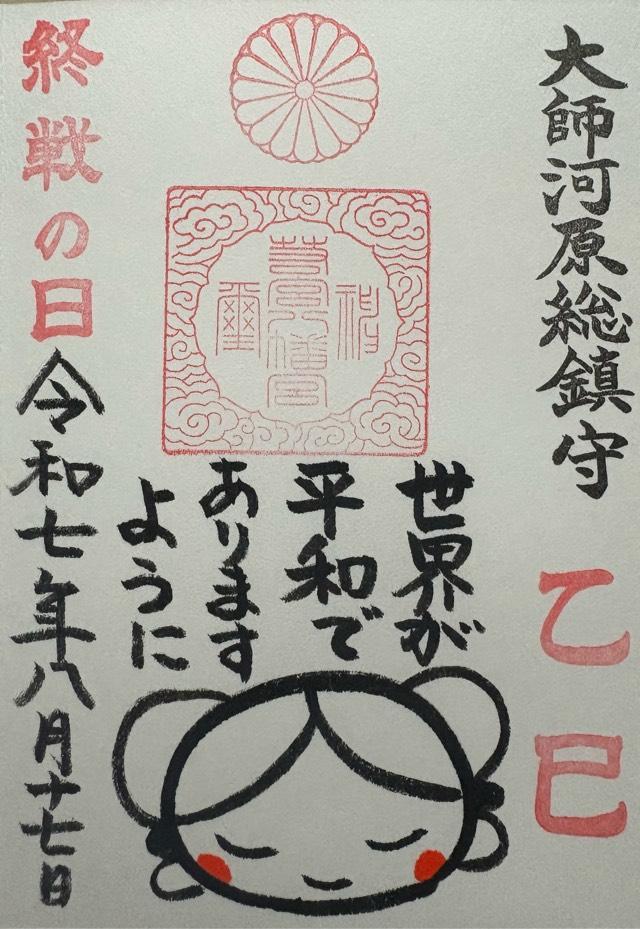 大師河原総鎮守
乙巳
若宮八幡宮
世界が
平和で
あります
ように
終戦の日
令和七年八月十七日